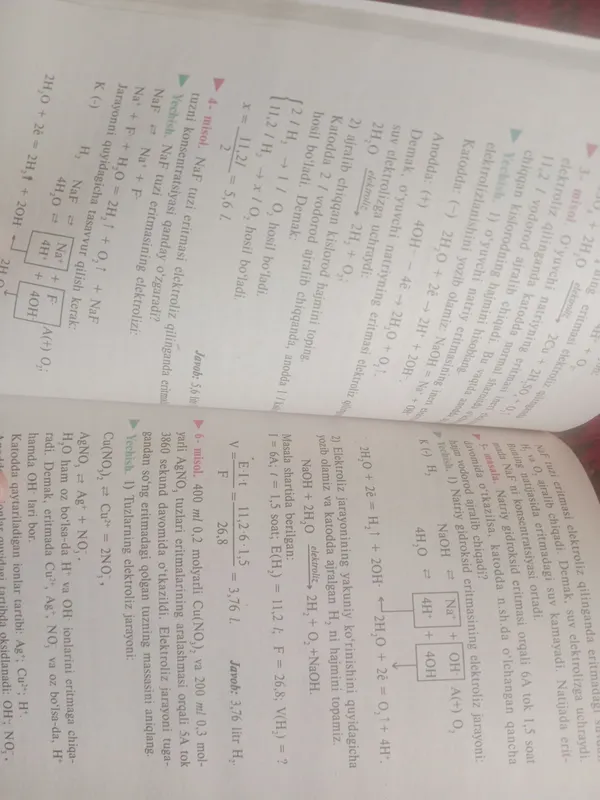 3- misol. O'yuvchi natriyning eritmasi elektroliz
elektroliz qilinganda katodda normal
11,2 l vodorod ajralib chiqadi. Bu
chiqqan kislorodning hajmini hisoblang
Yechish. 1) o'yuvchi natriy eritmasining
elektrolizlanishini yozib olamiz: NaOH ⇄ Na⁺ + OH⁻
Katodda: (–) 2H₂O + 2ē → 2H⁺ + 2OH⁻
Anodda: (+) 4OH⁻ – 4ē → 2H₂O + O₂↑.
Demak, o'yuvchi natriyning eritmasi elektroliz
suv elektrolizga uchraydi:
2H₂O elektroliz→ 2H₂ + O₂;
2) ajralib chiqqan kislorod hajmini toping.
Katodda 2 l vodorod ajralib chiqqanda, anodda 1 l
hosil bo'ladi. Demak:
{2 l H₂ → 1 l O₂ hosil bo'ladi.
11,2 l H₂ → x l O₂ hosil bo'ladi.
x = 11,2l / 2 = 5,6 l.
Javob: 5,6
4- misol. NaF tuzi eritmasi elektroliz qilinganda
tuzni konsentratsiyasi qanday o'zgaradi?
Yechish. NaF tuzi eritmasining elektrolizi:
NaF ⇄ Na⁺ + F⁻
Na⁺ + F⁻ + H₂O = 2H₂↑ + O₂↑ + NaF
Jarayonni quyidagicha tasavvur qilish kerak:
K (-) H₂ NaF ⇄ Na⁺ + F⁻ A(+) O₂;
4H₂O ⇄ 4H⁺ + 4OH⁻
2H₂O + 2ē = 2H₂↑ + 2OH⁻
NaF tuzi eritmasi elektroliz qilinganda eritmadagi
H₂ va O₂ ajralib chiqadi. Demak, suv elektrolizga uchraydi.
Buning natijasida eritmadagi suv kamayadi. Natijada
NaF ni konsentratsiyasi ortadi.
masala. Natriy gidroksid eritmasi orqali 6A tok 1,5 soat
davomida o'tkazilsa, katodda n.sh.da o'lchangan qancha
hajm vodorod ajralib chiqadi?
Yechish. 1) Natriy gidroksid eritmasining elektroliz jarayoni:
K (-) H₂ NaOH ⇄ Na⁺ + OH⁻ A(+) O₂
4H₂O ⇄ 4H⁺ + 4OH⁻
2H₂O + 2ē = H₂↑ + 2OH⁻ 2H₂O + 2ē = O₂↑+ 4H⁺.
2) Elektroliz jarayonining yakuniy ko'rinishini quyidagicha
yozib olamiz va katodda ajralgan H₂ ni hajmini topamiz.
NaOH + 2H₂O elektroliz→ 2H₂ + O₂ +NaOH.
Masala shartida berilgan:
I = 6A; t = 1,5 soat; E(H₂) = 11,2 l; F = 26,8; V(H₂) = ?
V = E·I·t / F = 11,2·6·1,5 / 26,8 = 3,76 l. Javob: 3,76 litr H₂.
6- misol. 400 ml 0,2 molyarli Cu(NO₃)₂ va 200 ml 0,3 mol-
yarli AgNO₃ tuzlari eritmalarining aralashmasi orqali 5A tok
3860 sekund davomida o'tkazildi. Elektroliz jarayoni tuga-
gandan so'ng eritmadagi qolgan tuzning massasini aniqlang.
Yechish. 1) Tuzlarning elektroliz jarayoni:
Cu(NO₃)₂ ⇄ Cu²⁺ = 2NO₃⁻,
AgNO₃ ⇄ Ag⁺ + NO₃⁻.
H₂O ham oz bo'lsa-da H⁺ va OH⁻ ionlarini eritmaga chiqa-
radi. Demak, eritmada Cu²⁺, Ag⁺, NO₃⁻ va oz bo'lsa-da, H⁺
hamda OH⁻ lari bor.
Katodda qaytariladigan ionlar tartibi: Ag⁺; Cu²⁺; H⁺.
ionlar quyidagi tartibda oksidlanadi: OH⁻; NO₃⁻.